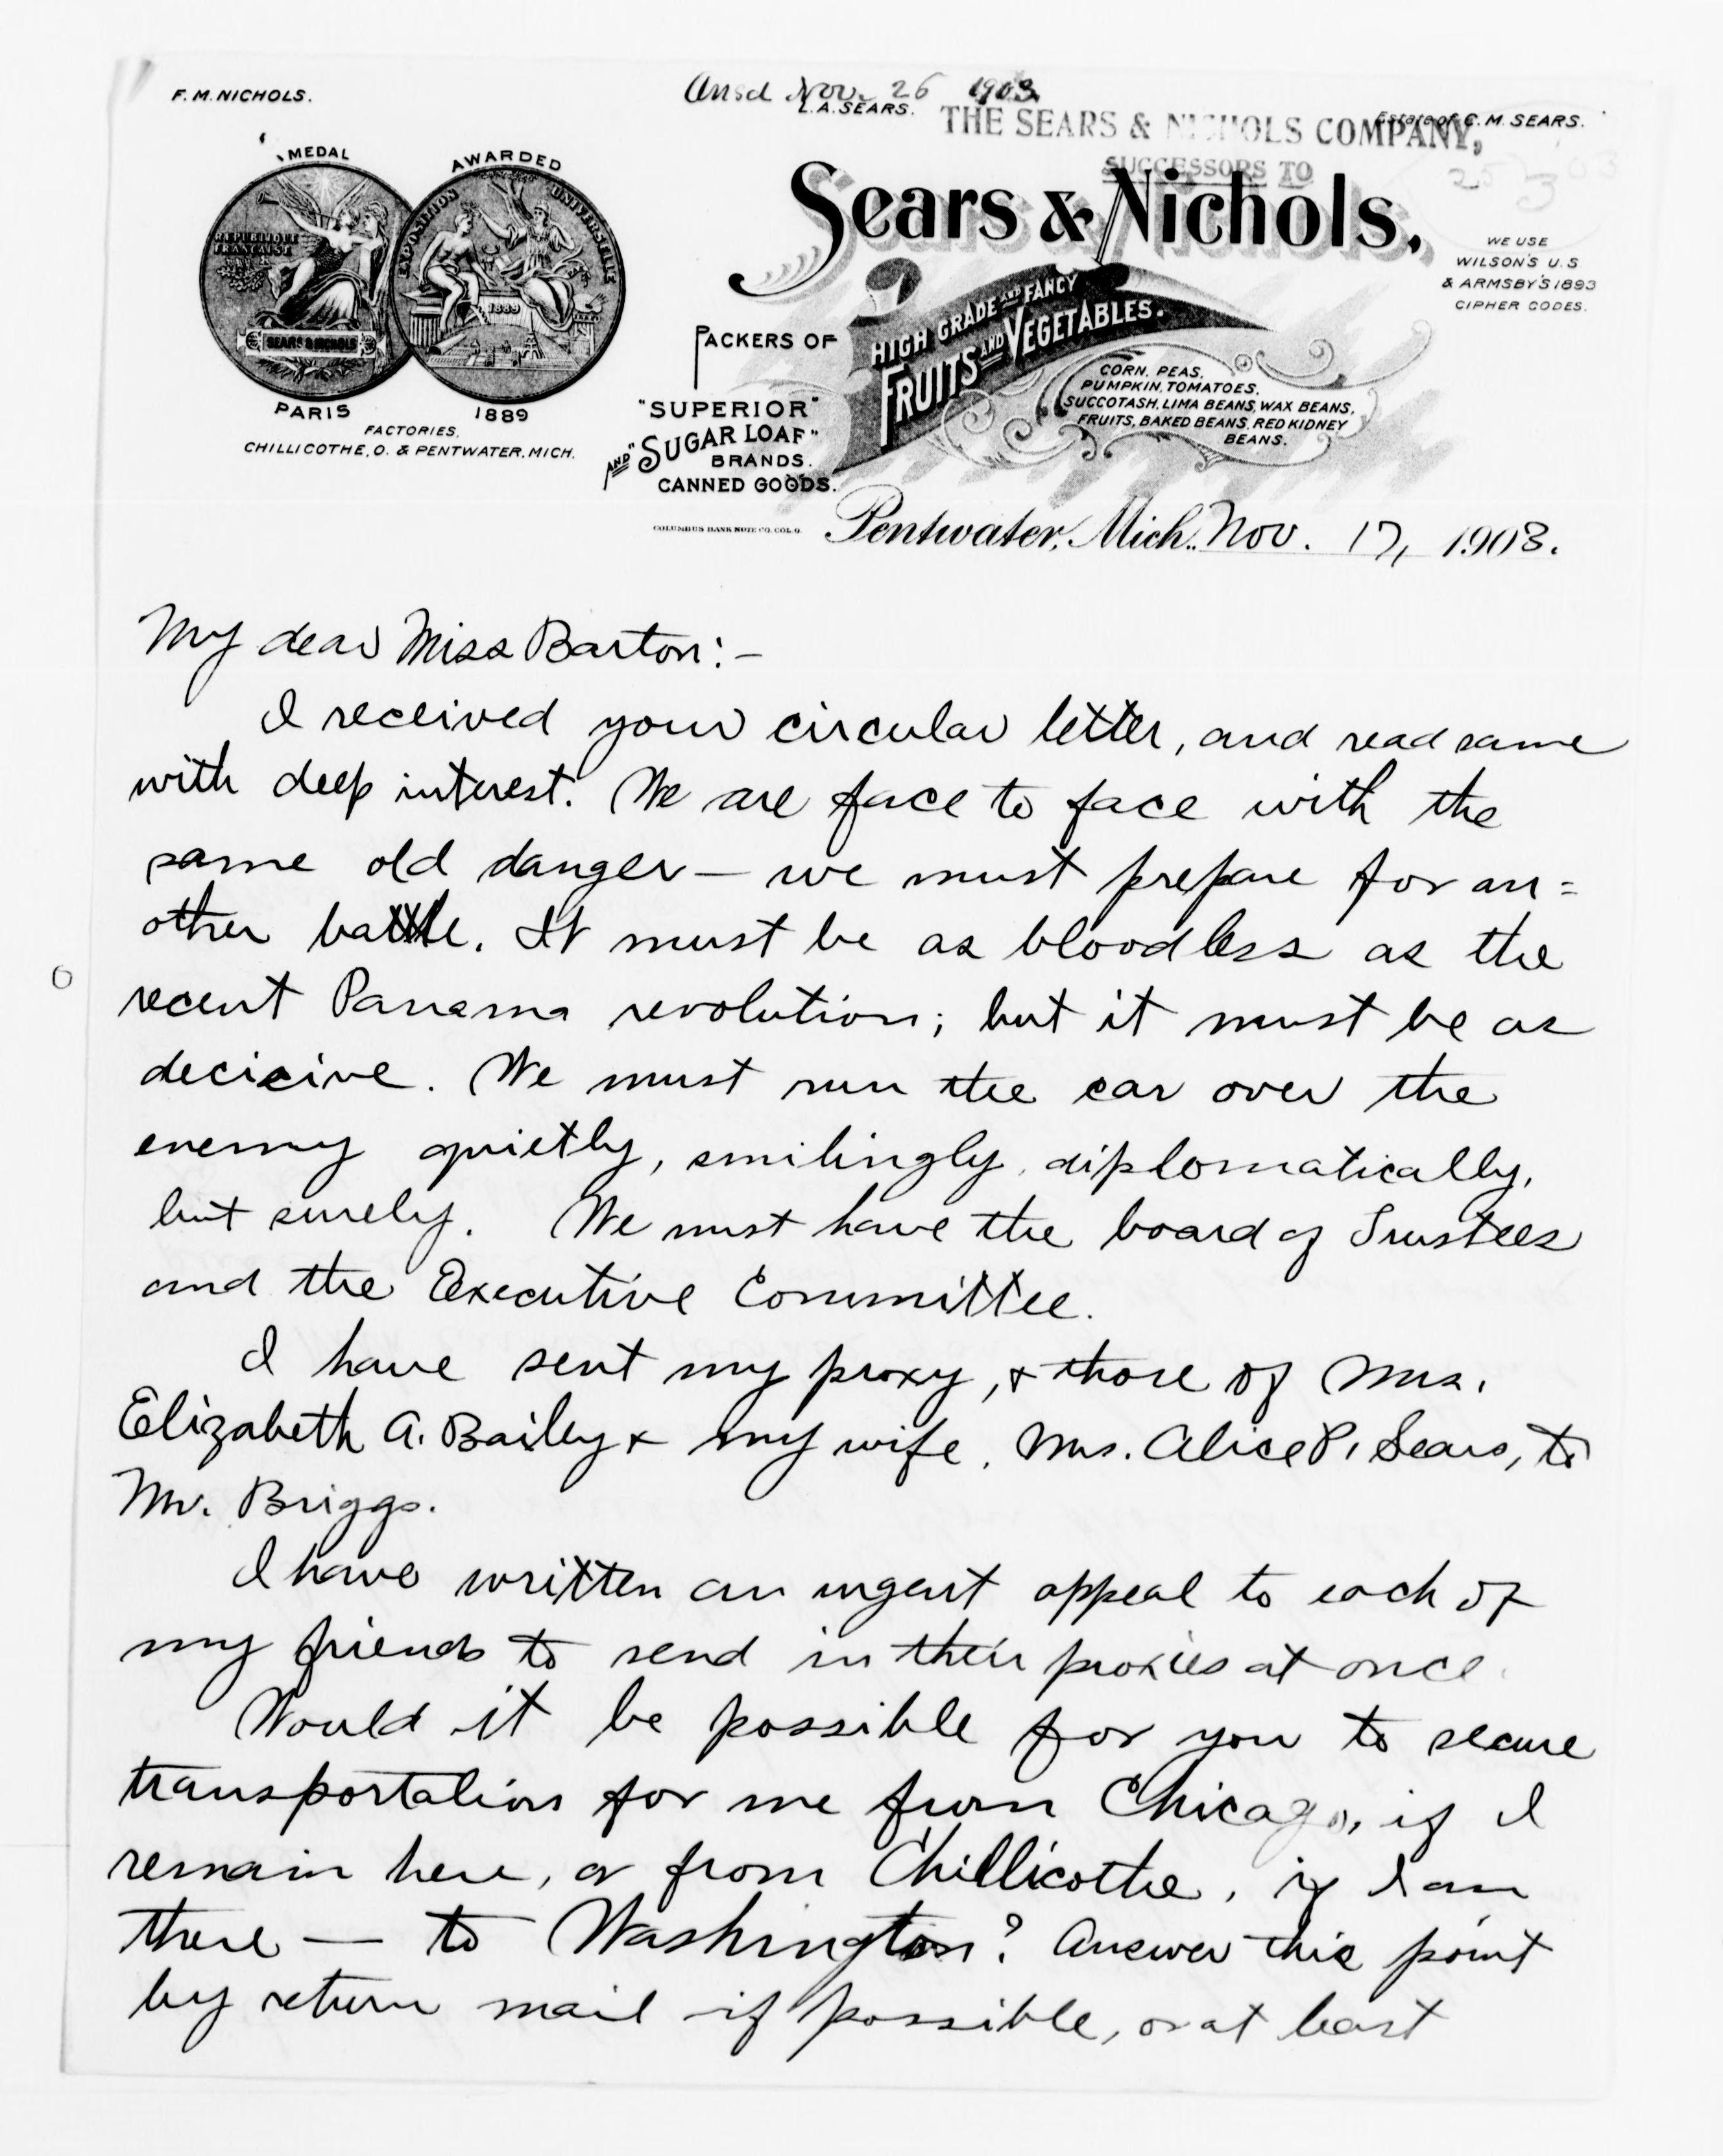 Ansd Nov. 26 1903
F. M. NICHOLS.
L. A. SEARS.
Estate of C. M. SEARS.
THE SEARS & NICHOLS COMPANY,
SUCCESSORS TO
Sears & Nichols,
MEDAL AWARDED
REPUBLIQUE
FRANÇAISE
SEARS & NICHOLS
EXPOSITION UNIVERSELLE
1889
PARIS 1889
FACTORIES,
CHILLICOTHE, O. & PENTWATER, MICH.
WE USE
WILSON'S U.S
& ARMSBY'S 1893
CIPHER CODES.
PACKERS OF
HIGH GRADE AND FANCY
FRUITS AND VEGETABLES.
"SUPERIOR"
AND "SUGAR LOAF"
BRANDS.
CANNED GOODS.
CORN, PEAS,
PUMPKIN, TOMATOES,
SUCCOTASH, LIMA BEANS, WAX BEANS,
FRUITS, BAKED BEANS, RED KIDNEY
BEANS.
COLUMBUS BANK NOTE CO. COL. O.
Pentwater, Mich., Nov. 17, 1903.
My dear Miss Barton:-
I received your circular letter, and read same
with deep interest. We are face to face with the
same old danger — we must prepare for an=
other battle. It must be as bloodless as the
recent Panama revolution; but it must be as
decisive. We must run the car over the
enemy quietly, smilingly, diplomatically,
but surely. We must have the board of Trustees
and the Executive Committee.
I have sent my proxy, & those of Mrs.
Elizabeth A. Bailey & my wife, Mrs. Alice P. Sears, to
Mr. Briggs.
I have written an urgent appeal to each of
my friends to send in their proxies at once.
Would it be possible for you to secure
transportation for me from Chicago, if I
remain here, or from Chillicothe, if I am
there — to Washington? Answer this point
by return mail if possible, or at least